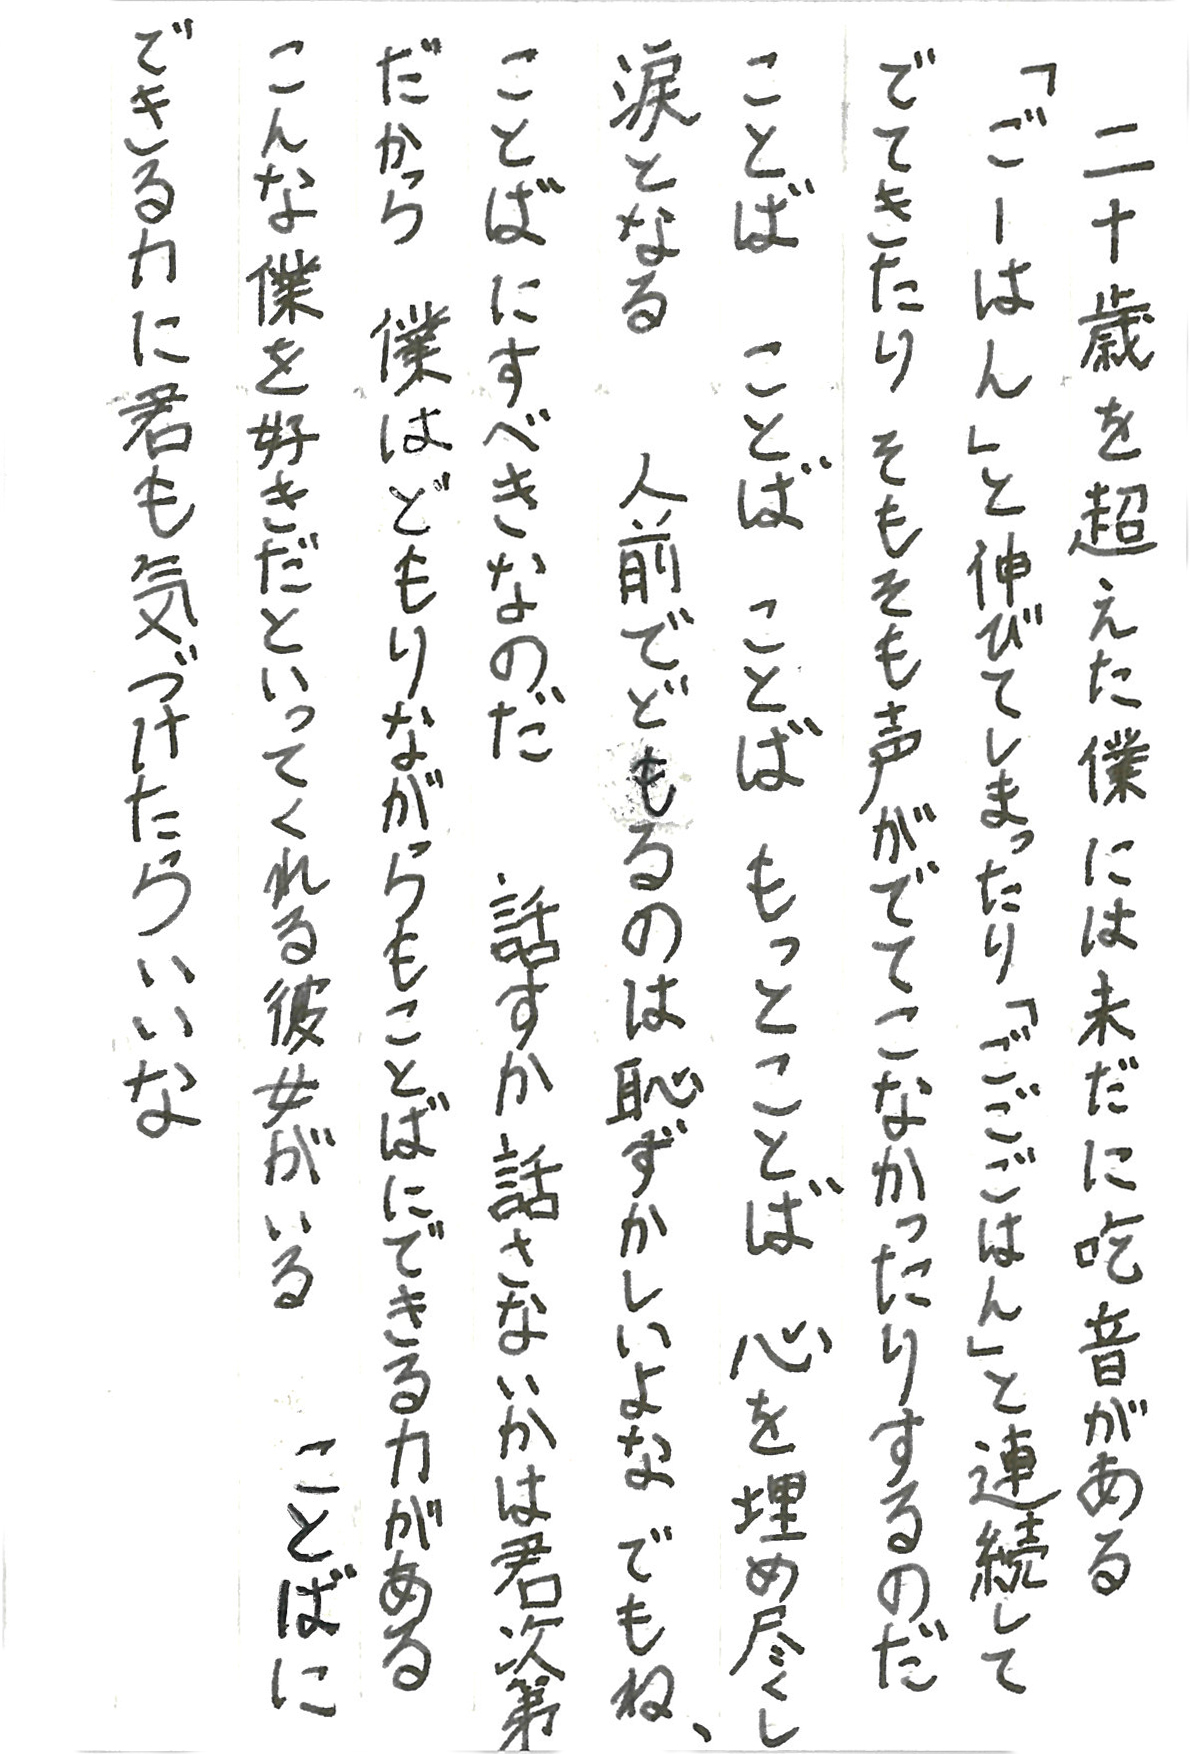 二十歳を超えた僕には未だに吃音がある
「ごーはん」と伸びてしまったり「ごごごはん」と連続して
でてきたり そもそも声がでてこなかったりするのだ
ことば ことば ことば もっとことば 心を埋め尽くし
涙となる 人前でどもるのは恥ずかしいよな でもね、
ことばにすべきなのだ 話すか話さないかは君次第
だから 僕はどもりながらもことばにできる力がある
こんな僕を好きだといってくれる彼女がいる ことばに
できる力に君も気づけたらいいな